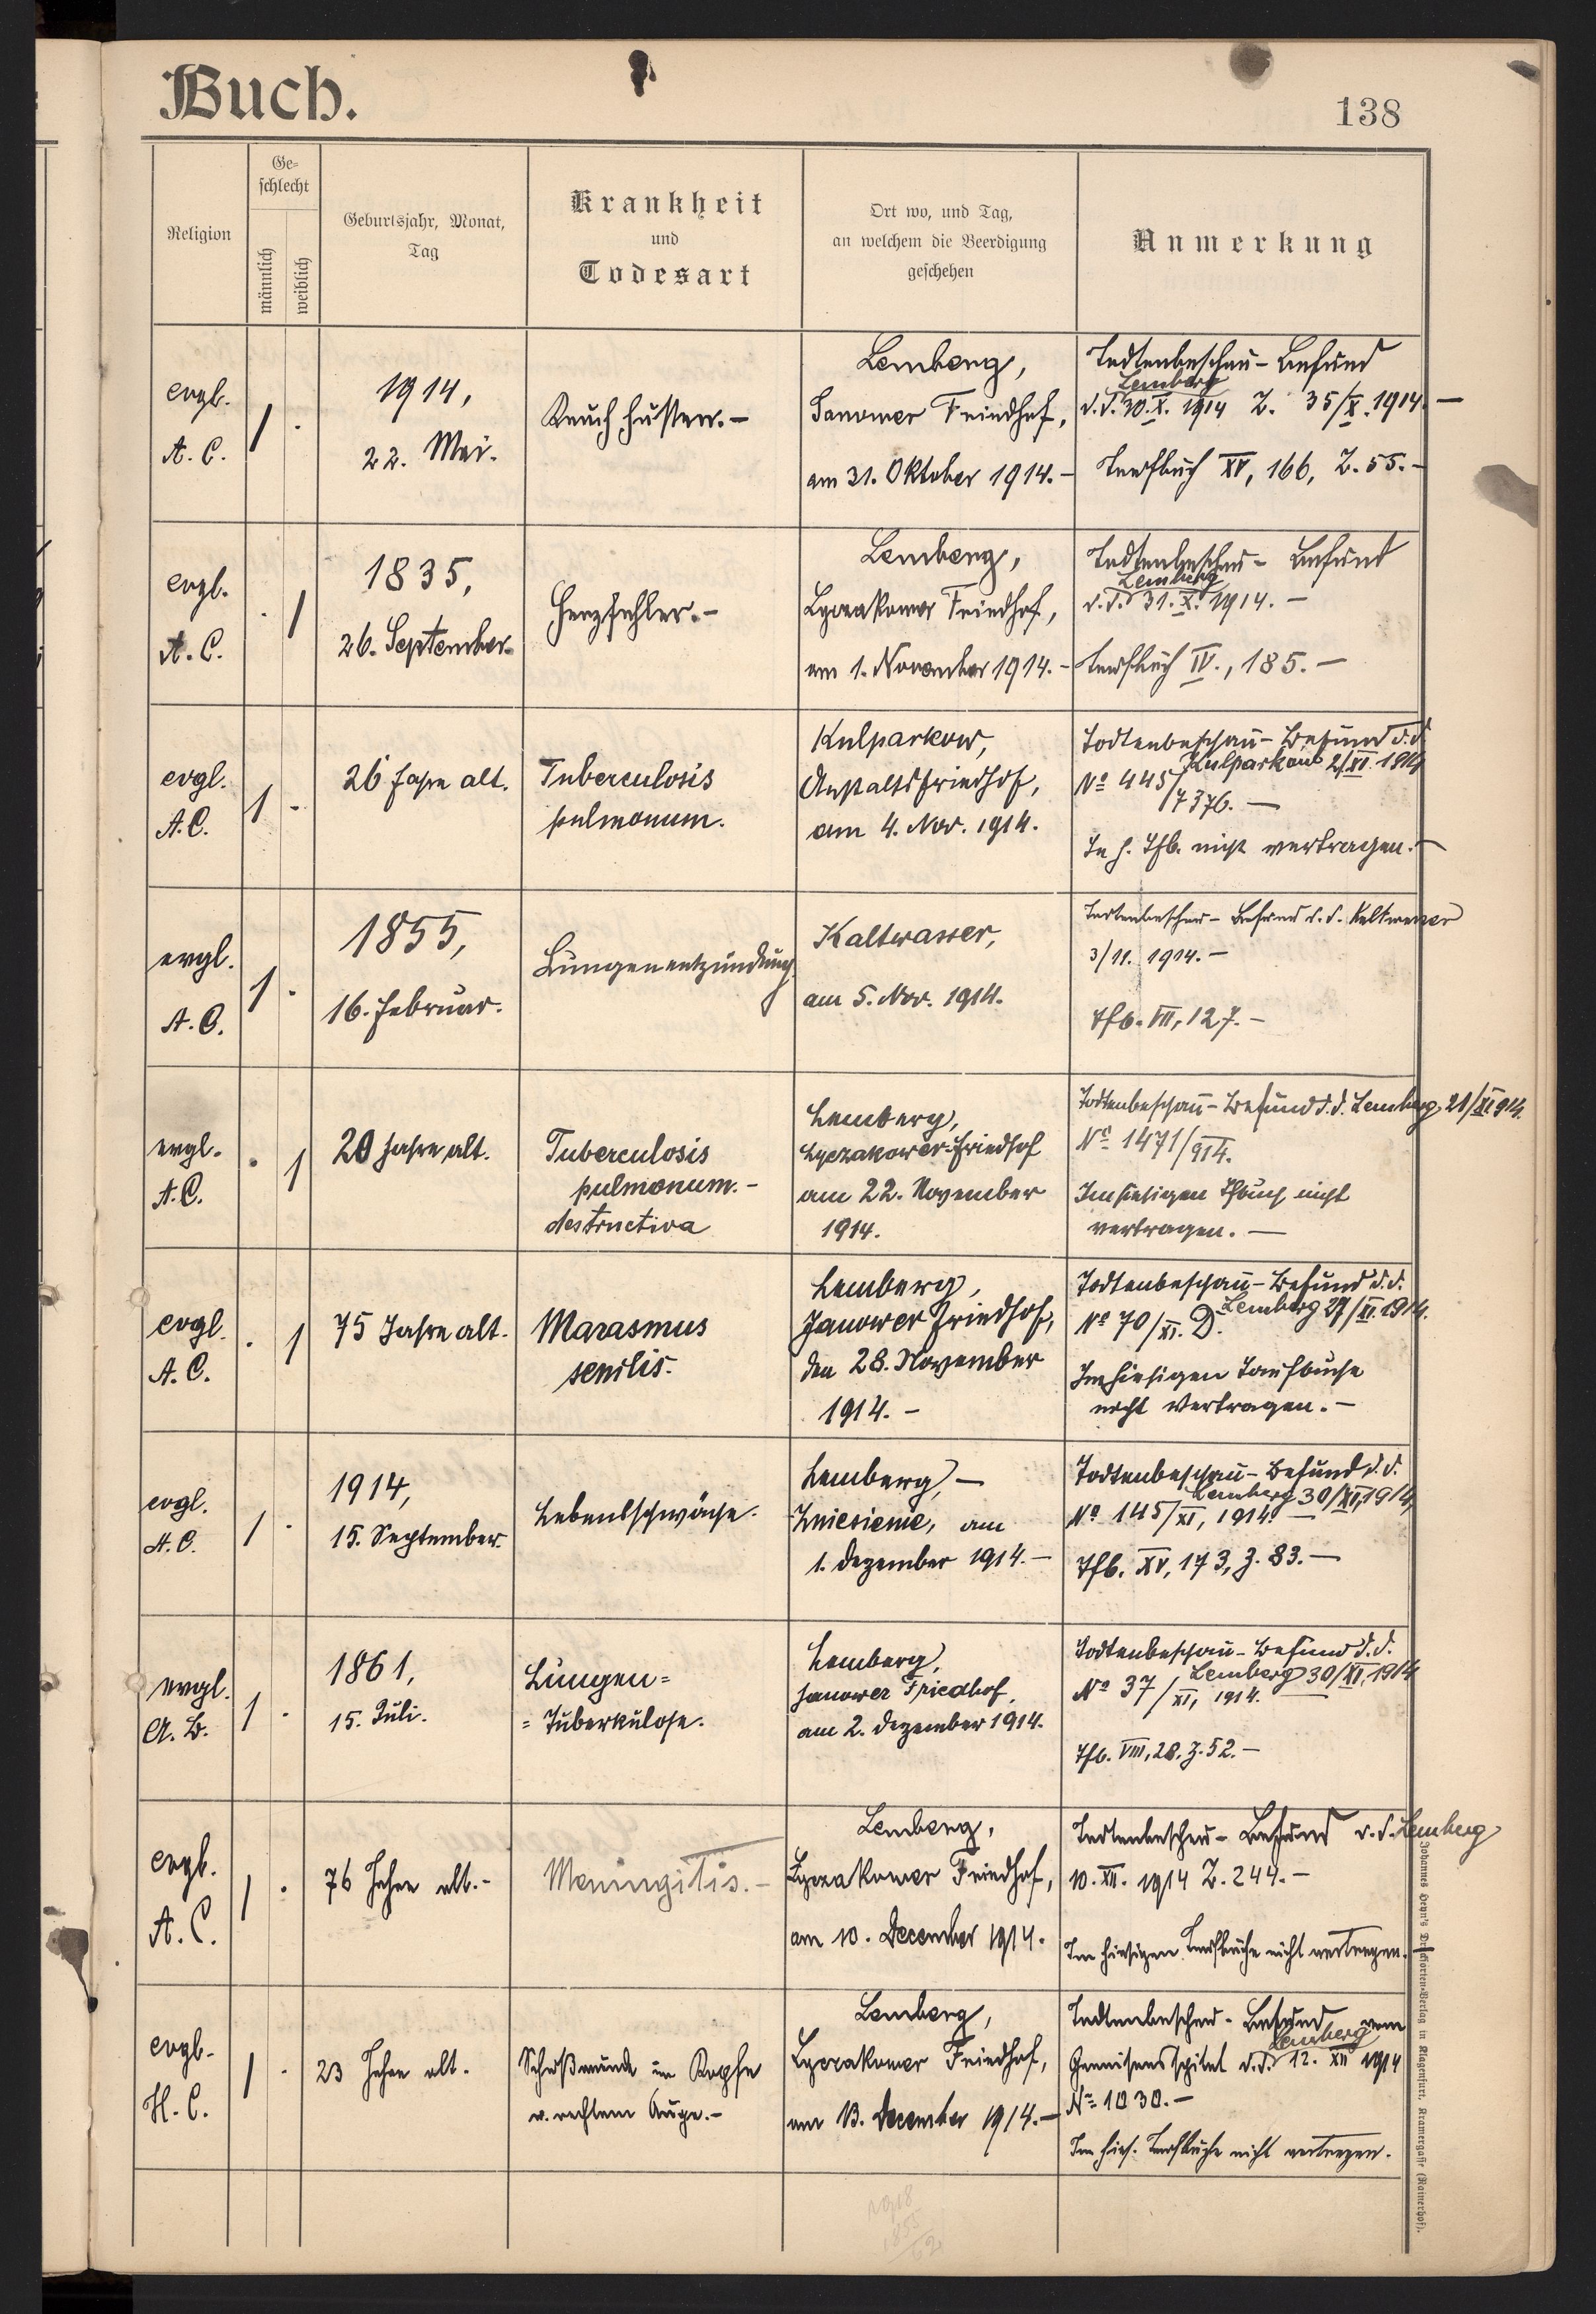 Buch.
138
Religion
Ge-
schlecht
männlich
weiblich
Geburtsjahr, Monat,
Tag
Krankheit
und
Todesart
Ort wo, und Tag,
an welchem die Beerdigung
geschehen
Anmerkung
evgl.
A. C.
1 .
1914,
22. Mai.
Keuchhusten. –
Lemberg,
Janower Friedhof,
am 31. Oktober 1914. –
Todtenbeschau - Befund
Lemberg
d. d. 30. X. 1914 Z. 35/X. 1914 –
Taufbuch XV, 166, Z. 55. –
evgl.
A. C.
. 1
1835,
26. September.
Herzfehler. –
Lemberg,
Lyczakower Friedhof,
am 1. November 1914. –
Todtenbeschau - Befund
Lemberg
d. d. 31. X. 1914. –
Taufbuch IV., 185. –
evgl.
A. C.
1 .
26 Jahre alt.
Tuberculosis
pulmonum.
Kulparkow,
Anstaltsfriedhof,
am 4. Nov. 1914.
Todtenbeschau - Befund d. d.
Kulparkow 2/XI. 1914
Nº 445/7376. –
In h. Tfb. nicht vertragen. –
evgl.
A. C.
1 .
1855,
16. Februar.
Lungenentzündung.
Kaltwasser,
am 5. Nov. 1914.
Todtenbeschau - Befund d. d. Kaltwasser
3/11. 1914. –
Tfb. VII, 127. –
evgl.
A. C.
. 1
20 Jahre alt.
Tuberculosis
pulmonum. –
destructiva
Lemberg,
Lyczakower-Friedhof
am 22. November
1914.
Todtenbeschau - Befund d. d. Lemberg, 21/XI. 914.
Nº 1471/914.
Im hiesigen Tfbuch nicht
vertragen. –
evgl.
A. C.
. 1
75 Jahre alt.
Marasmus
senilis.
Lemberg,
Janower Friedhof,
den 28. November
1914. –
Todtenbeschau - Befund d. d.
Lemberg 27/XI. 1914.
Nº 70/XI. D.
Im hiesigen Taufbuche
nicht vertragen. –
evgl.
A. C.
1 .
1914,
15. September.
Lebensschwäche.
Lemberg, –
Zniesienie, am
1. Dezember 1914. –
Todtenbeschau - Befund d. d.
Lemberg 30/XI, 1914,
Nº 145/XI, 1914. –
Tfb. XV, 173, Z. 83. –
evgl.
A. B.
1 .
1861,
15. Juli.
Lungen=
=Tuberkulose.
Lemberg,
Janower Friedhof,
am 2. Dezember 1914.
Todtenbeschau - Befund d. d.
Lemberg 30/XI, 1914
Nº 37/XI, 1914. –
Tfb. VIII, 28, Z. 52. –
evgl.
A. C.
1 .
76 Jahre alt. –
Meningitis. –
Lemberg,
Lyczakower Friedhof,
am 10. December 1914.
Todtenbeschau - Befund d. d. Lemberg
10. XII. 1914 Z. 244. –
Im hiesigen Taufbuche nicht vertragen. –
evgl.
H. C.
1 .
23 Jahre alt.
Schußwunde im Kopfe
u. rechtem Auge. –
Lemberg,
Lyczakower Friedhof,
am 13. December 1914. –
Todtenbeschau - Befund vom
Lemberg
Garnisonsspital d. d. 12. XII 1914
Nº 1030. –
Im hies. Taufbuche nicht vertragen.
1918
1855
62
Johannes Heyn's Drucksorten-Verlag in Klagenfurt, Kramergasse (Rainerhof).